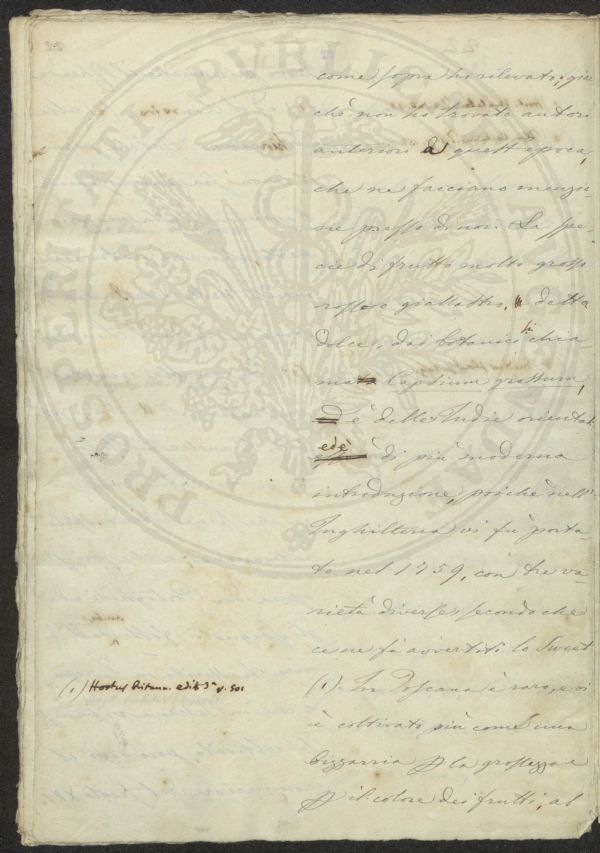 come sopra ho rilevato; gia
chè non ho trovato autori
anteriori a quest'epoca,
che ne facciano menzio-
ne presso di noi. La spe-
cie di frutto molto grosso
rosso o giallastro, detta
dolce, dai botanici si chia
ma Capsicum grossum,
è delle Indie orientali
ed è di più moderna
introduzione, poichè nell'
Inghilterra vi fù porta-
to nel 1759, con tre va-
rietà diverse, secondo che
ce ne fà avvertiti lo Sweet
(1). In Toscana è raro, e vi
è coltivato più come una
bizzarria p la grossezza e
p il colore dei frutti, al
(1) Hortus britann. edit 3ª p. 501
PROSPERI ATI PUBLICAE